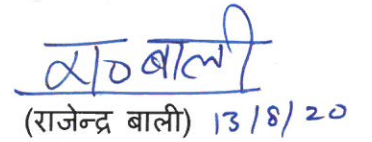 रा० बाली
(राजेन्द्र बाली) 13/8/20